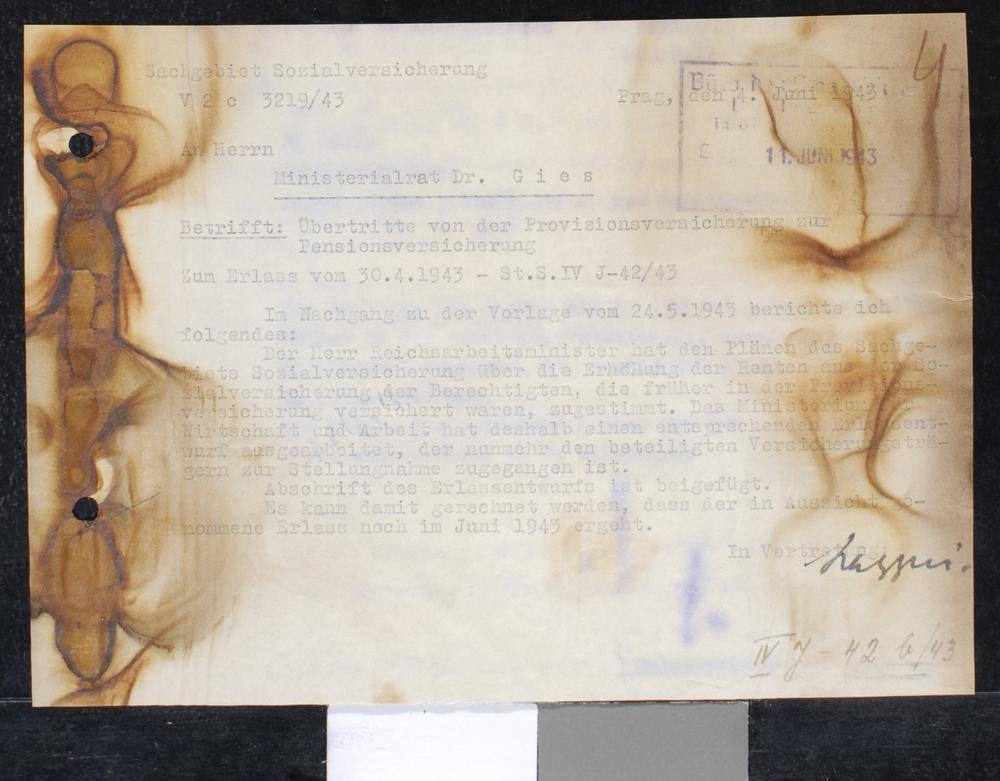 4
Sachgebiet Sozialversicherung
V 2 c 3219/43
Prag, den 4. Juni 1943
11. JUNI 1943
An Herrn
Ministerialrat Dr. G i e s
Betrifft: Übertritte von der Provisionsversicherung zur
Pensionsversicherung
Zum Erlass vom 30.4.1943 - St.S.IV J-42/43
Im Nachgang zu der Vorlage vom 24.5.1943 berichte ich
folgendes:
Der Herr Reichsarbeitsminister hat den Plänen des Sachge-
biets Sozialversicherung über die Erhöhung der Renten aus der So-
zialversicherung der Berechtigten, die früher in der Provisions-
versicherung versichert waren, zugestimmt. Das Ministerium für
Wirtschaft und Arbeit hat deshalb einen entsprechenden Erlassent-
wurf ausgearbeitet, der nunmehr den beteiligten Versicherungsträ-
gern zur Stellungnahme zugegangen ist.
Abschrift des Erlassentwurfs ist beigefügt.
Es kann damit gerechnet werden, dass der in Aussicht ge-
nommene Erlass noch im Juni 1943 ergeht.
In Vertretung:
IV J - 42 b/43